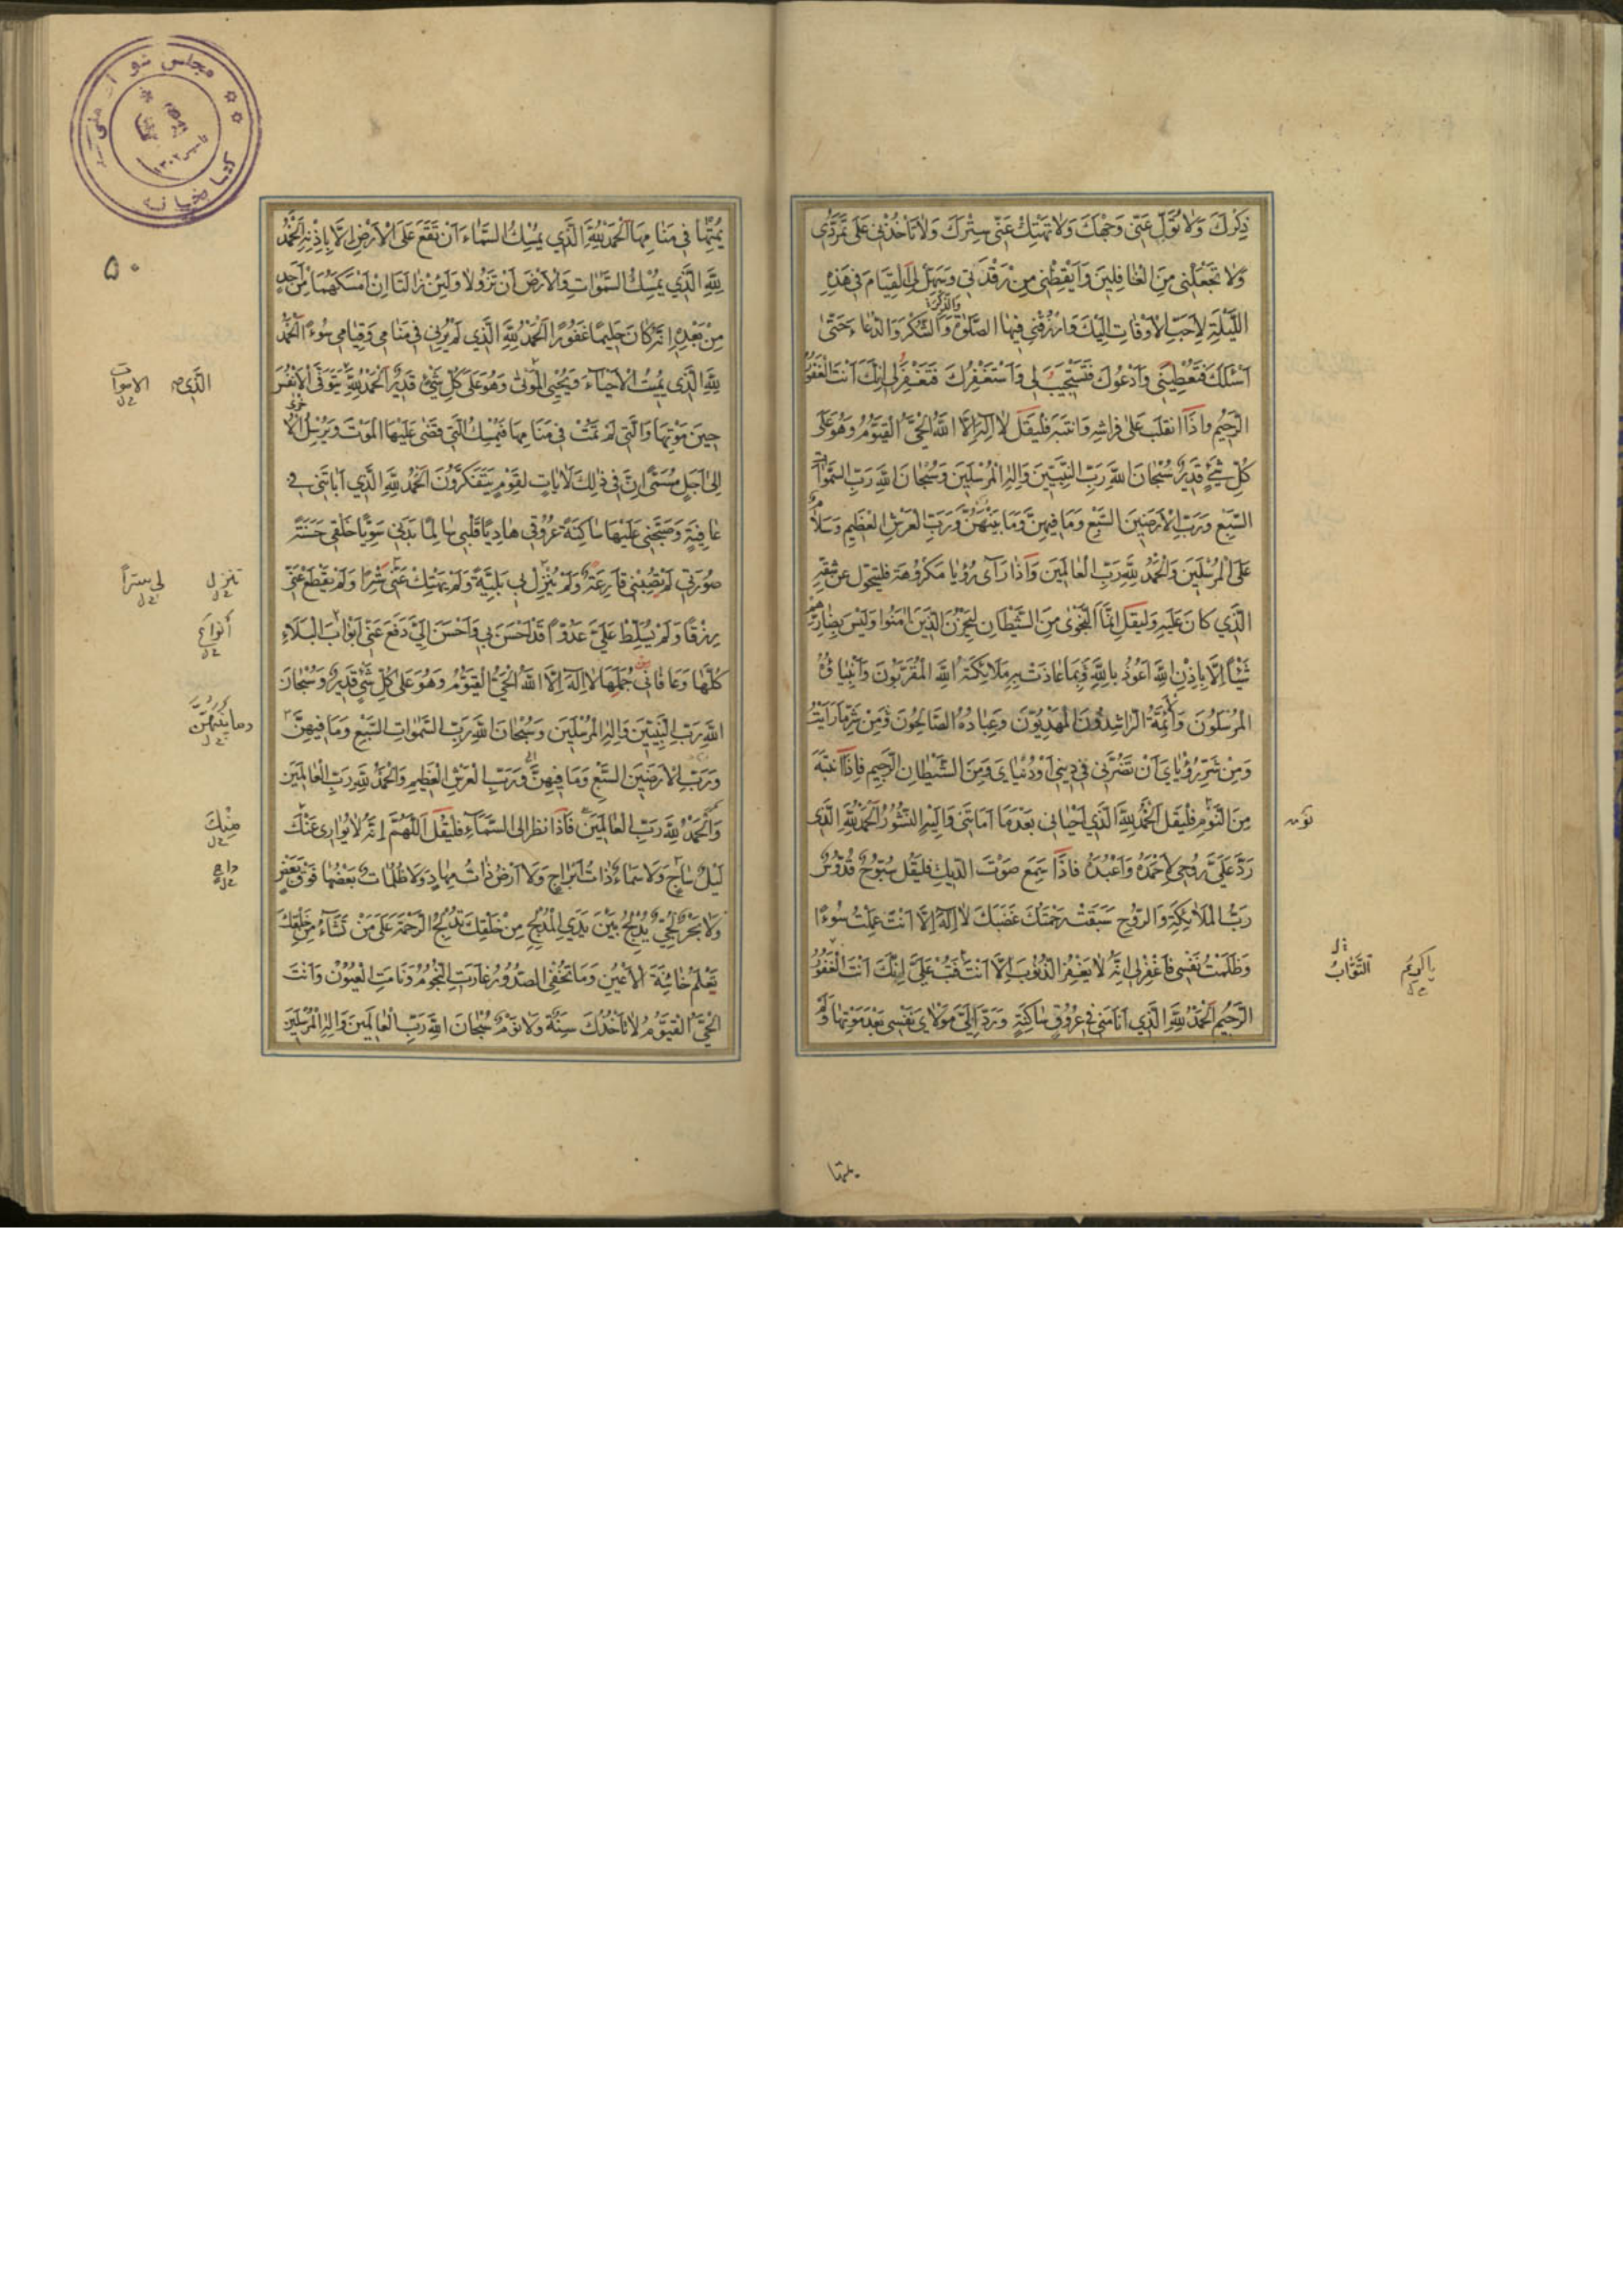 ذِكْرَكَ وَلَا تُوَلِّ عَنِّي وَجْهَكَ وَلَا تَهْتِكْ عَنِّي سِتْرَكَ وَلَا تَأْخُذْنِي عَلَى تَمَرُّدِي
وَلَا تَجْعَلْنِي مِنَ الْغَافِلِينَ وَأَيْقِظْنِي مِنْ رَقْدَتِي وَسَهِّلْ لِيَ الْقِيَامَ فِي هَذِهِ
اللَّيْلَةِ لِأَحَبِّ الْأَوْقَاتِ إِلَيْكَ وَارْزُقْنِي فِيهَا الصَّلَوٰةَ وَالشُّكْرَ وَالدُّعَاءَ حَتَّىٰ
أَسْئَلَكَ فَتُعْطِيَنِي وَأَدْعُوَكَ فَتَسْتَجِيبَ لِي وَأَسْتَغْفِرَكَ فَتَغْفِرَ لِي إِنَّكَ أَنْتَ الْغَفُورُ
الرَّحِيمُ وإذَا انقلَبَ عَلىٰ فراشِهِ وَانتبَهَ فليَقُل لَا إِلٰهَ إِلَّا اللَّهُ الْحَيُّ الْقَيُّومُ وَهُوَ عَلَى
كُلِّ شَيْءٍ قَدِيرٌ سُبْحَانَ اللَّهِ رَبِّ النَّبِيِّينَ وَإِلٰهِ الْمُرْسَلِينَ وَسُبْحَانَ اللَّهِ رَبِّ السَّمَوَاتِ
السَّبْعِ وَرَبِّ الْأَرَضِينَ السَّبْعِ وَمَا فِيهِنَّ وَمَا بَيْنَهُنَّ وَرَبِّ الْعَرْشِ الْعَظِيمِ وَسَلَامٌ
عَلَى الْمُرْسَلِينَ وَالْحَمْدُ لِلَّهِ رَبِّ الْعَالَمِينَ وَإذَا رَأَى رُؤيا مَكرُوهَة فليتحوّل عن شقِّهِ
الَّذِي كَانَ عَلَيهِ وَليَقُل إِنَّمَا النَّجْوَىٰ مِنَ الشَّيْطَانِ لِيَحْزُنَ الَّذِينَ اٰمَنُوا وَلَيْسَ بِضَارِّهِمْ
شَيْئًا إِلَّا بِإِذْنِ اللَّهِ أَعُوذُ بِاللَّهِ وَبِمَا عَاذَتْ بِهِ مَلَائِكَةُ اللَّهِ الْمُقَرَّبُونَ وَأَنْبِيَاؤُهُ
الْمُرْسَلُونَ وَالْأَئِمَّةُ الرَّاشِدُونَ الْمَهْدِيُّونَ وَعِبَادُهُ الصَّالِحُونَ وَمِنْ شَرِّ مَا رَأَيْتُ
وَمِنْ شَرِّ رُؤْيَايَ أَنْ تَضُرَّنِي فِي دِينِي أَوْ دُنْيَايَ وَمِنَ الشَّيْطَانِ الرَّجِيمِ فإذَا انتبَهَ
مِنَ النَّومِ فليَقل الْحَمْدُ لِلَّهِ الَّذِي أَحْيَانِي بَعْدَ مَا أَمَاتَنِي وَإِلَيْهِ النُّشُورُ الْحَمْدُ لِلَّهِ الَّذِي
رَدَّ عَلَيَّ رُوحِي لِأَحْمَدَهُ وَأَعْبُدَهُ فإذَا سَمِعَ صَوْتَ الدّيكِ فليَقُل سُبُّوحٌ قُدُّوسٌ
رَبُّ الْمَلَائِكَةِ وَالرُّوحِ سَبَقَتْ رَحْمَتُكَ غَضَبَكَ لَا إِلٰهَ إِلَّا أَنْتَ عَمِلْتُ سُوءًا
وَظَلَمْتُ نَفْسِي فَاغْفِرْ لِي إِنَّهُ لَا يَغْفِرُ الذُّنُوبَ إِلَّا أَنْتَ فَتُبْ عَلَيَّ إِنَّكَ أَنْتَ الْغَفُورُ
الرَّحِيمُ الْحَمْدُ لِلَّهِ الَّذِي أَنَامَنِي فِي عُرُوقٍ سَاكِنَةٍ وَرَدَّ إِلَيَّ مَوْلَايَ نَفْسِي بَعْدَ مَوْتِهَا وَلَمْ
نومه
يا كريم التَّوّابُ
يمتها
يُمِتْهَا فِي مَنَامِهَا الْحَمْدُ لِلَّهِ الَّذِي يُمْسِكُ السَّمَاءَ أَنْ تَقَعَ عَلَى الْأَرْضِ إِلَّا بِإِذْنِهِ الْحَمْدُ
لِلَّهِ الَّذِي يُمْسِكُ السَّمَوَاتِ وَالْأَرْضَ أَنْ تَزُولَا وَلَئِنْ زَالَتَا إِنْ أَمْسَكَهُمَا مِنْ أَحَدٍ
مِنْ بَعْدِهِ إِنَّهُ كَانَ حَلِيمًا غَفُورًا الْحَمْدُ لِلَّهِ الَّذِي لَمْ يُرِنِي فِي مَنَامِي وَقِيَامِي سُوءً الْحَمْدُ
لِلَّهِ الَّذِي يُمِيتُ الْأَحْيَاءَ وَيُحْيِي الْمَوْتَىٰ وَهُوَ عَلَى كُلِّ شَيْءٍ قَدِيرٌ الْحَمْدُ لِلَّهِ يَتَوَفَّى الْأَنْفُسَ
حِينَ مَوْتِهَا وَالَّتِي لَمْ تَمُتْ فِي مَنَامِهَا فَيُمْسِكُ الَّتِي قَضَى عَلَيْهَا الْمَوْتَ وَيُرْسِلُ الْأُخْرَى
إِلَى أَجَلٍ مُسَمًّى إِنَّ فِي ذٰلِكَ لَآيَاتٍ لِقَوْمٍ يَتَفَكَّرُونَ الْحَمْدُ لِلَّهِ الَّذِي أَبَاتَنِي فِي
عَافِيَةٍ وَصَبَّحَنِي عَلَيْهَا سَاكِنَةً عُرُوقِي هَادِيًا قَلْبِي سَالِمًا بَدَنِي سَوِيًّا خَلْقِي حَسَنَةً
صُورَتِي لَمْ تُصِبْنِي قَارِعَةٌ وَلَمْ يُنْزِلْ بِي بَلِيَّةً وَلَمْ يَهْتِكْ عَنِّي سِتْرًا وَلَمْ يَقْطَعْ عَنِّي
رِزْقًا وَلَمْ يُسَلِّطْ عَلَيَّ عَدُوًّا قَدْ أَحْسَنَ بِي وَأَحْسَنَ إِلَيَّ دَفَعَ عَنِّي أَبْوَابَ الْبَلَاءِ
كُلَّهَا وَعَافَانِي جُمْلَهَا لَا إِلٰهَ إِلَّا اللَّهُ الْحَيُّ الْقَيُّومُ وَهُوَ عَلَى كُلِّ شَيْءٍ قَدِيرٌ وَسُبْحَانَ
اللَّهِ رَبِّ النَّبِيِّينَ وَإِلٰهِ الْمُرْسَلِينَ وَسُبْحَانَ اللَّهِ رَبِّ السَّمَوَاتِ السَّبْعِ وَمَا فِيهِنَّ
وَرَبِّ الْأَرَضِينَ السَّبْعِ وَمَا فِيهِنَّ وَرَبِّ الْعَرْشِ الْعَظِيمِ وَالْحَمْدُ لِلَّهِ رَبِّ الْعَالَمِينَ
وَالْحَمْدُ لِلَّهِ رَبِّ الْعَالَمِينَ فَإذَا نظر إلى السَّمَاءِ فليَقُل اللّٰهُمَّ إِنَّهُ لَا يُوَارِي عَنْكَ
لَيْلٌ سَاجٍ وَلَا سَمَاءٌ ذَاتُ أَبْرَاجٍ وَلَا أَرْضٌ ذَاتُ مِهَادٍ وَلَا ظُلُمَاتٌ بَعْضُهَا فَوْقَ بَعْضٍ
وَلَا بَحْرٌ لُجِّيٌّ يُدْلِجُ بَيْنَ يَدَيِ الْمُدْلِجِ مِنْ خَلْقِكَ تُدْلِجُ الرَّحْمَةَ عَلَى مَنْ تَشَاءُ مِنْ خَلْقِكَ
تَعْلَمُ خَائِنَةَ الْأَعْيُنِ وَمَا تُخْفِي الصُّدُورُ غَارَتِ النُّجُومُ وَنَامَتِ الْعُيُونُ وَأَنْتَ
الْحَيُّ الْقَيُّومُ لَا تَأْخُذُكَ سِنَةٌ وَلَا نَوْمٌ سُبْحَانَ اللَّهِ رَبِّ الْعَالَمِينَ وَإِلٰهِ الْمُرْسَلِينَ
٥٠
الَّذي الاموات
تنزل لي سترًا
أنواع
وما بينهنّ
مِنكَ
داجٍ
مجلس شورای ملی
کتابخانه